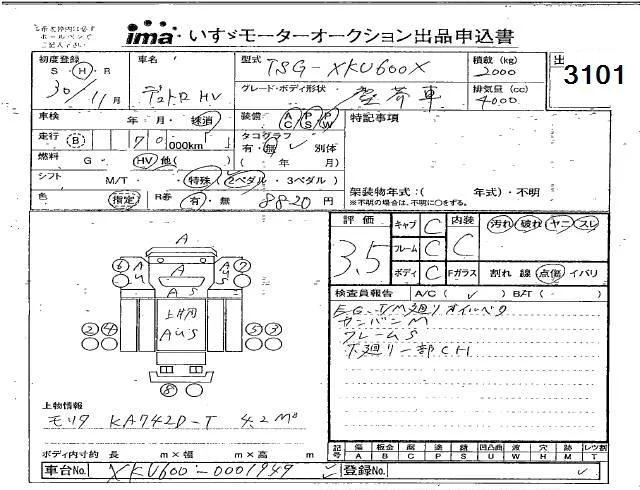 ima・いすゞモーターオークション出品申込書
3101
初度登録
S・H・R
30/11月
車名
デュトロHV
型式
TSG-XKU600X
積載(kg)
2000
グレード・ボディ形状
塵芥車
排気量(cc)
4000
車検 年 月・抹消
装備 AC PS PW
特記事項
走行 B 70,000km
タコグラフ
有・無 別体
( 年 月)
燃料 G HV 他( )
シフト M/T・特殊(2ペダル・3ペダル)
色 指定
R券 有・無 8820円
架装物年式:( 年式)・不明
※不明の場合は、不明に○をする。
評価
3.5
キャブ C
フレーム C
ボディ C
内装
C
汚れ・破れ・ヤニ・スレ
Fガラス 割れ 線 点傷・イバリ
検査員報告 A/C( ) B/T( )
EG TM廻りオイルベタ
カンバンM
フレームS
下廻り一部CH
A
6 A U S A A U S 7
A S
上物同
A U S
2 4 5 3
8
上物情報
モリタ KA742D-T 4.2M³
ボディ内寸約 長 m×幅 m×高 m
記号 傷A 板金B 腐C 塗P 錆S 凹凸曲U 波W 穴H 跡M レツ割T
車台No. XKU600-0001949
登録No.